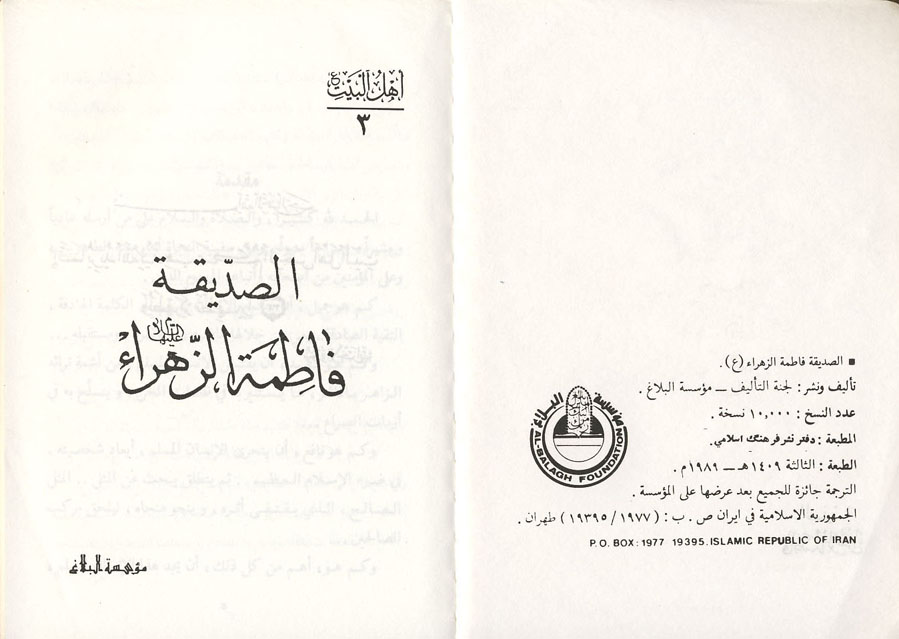 ■ الصديقة فاطمة الزهراء (ع) .
تأليف ونشر : لجنة التأليف ــ مؤسسة البلاغ .
عدد النسخ : ١٠,٠٠٠ نسخة .
المطبعة : دفتر نشر فرهنگ اسلامي.
الطبعة : الثالثة ١٤٠٩ هـ ــ ١٩٨٩ م .
الترجمة جائزة للجميع بعد عرضها على المؤسسة .
الجمهورية الاسلامية في ايران ص . ب : ( ١٩٧٧ / ١٩٣٩٥ ) طهران .
P.O. BOX: 1977 19395. ISLAMIC REPUBLIC OF IRAN
مؤسسة البلاغ
AL-BALAGH FOUNDATION
أَهْلُ الْبَيْتِ ع
٣
الصدّيقة
فَاطِمَة الزَّهْرَاء عليها السلام
مؤسسة البلاغ